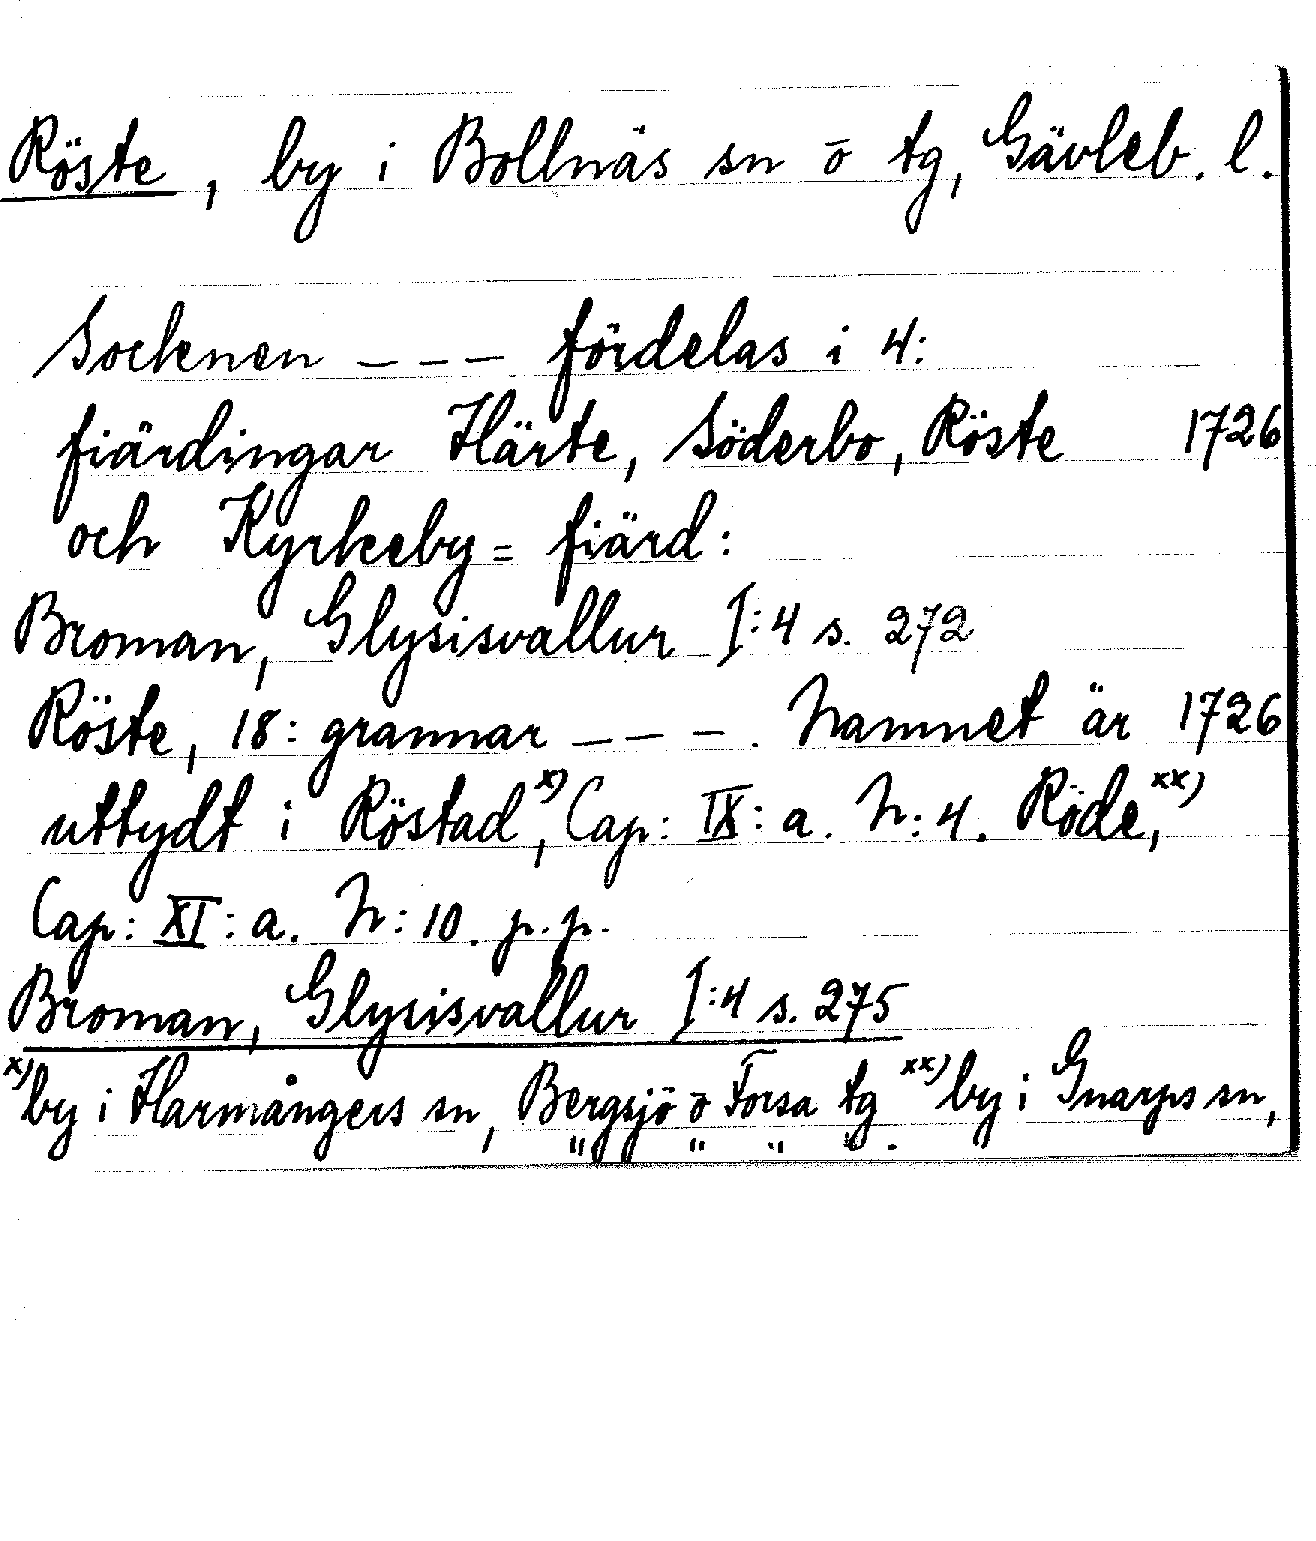 Röste, by i Bollnäs sn ō tg, Gävleb. l.
Socknen - - - fördelas i 4:
fiärdingar Härte, Söderbo, Röste 1726
och Kyrkeby= fiärd:
Broman, Glysisvallur I:4 s. 272
Röste, 18: grannar - - - . Namnet är 1726
uttydt i Röstad,x) Cap: IX: a. N: 4. Röde,xx)
Cap: XI: a. N: 10. p.p.
Broman, Glysisvallur I:4 s. 275
x) by i Harmångers sn, Bergsjö ō Forsa tg xx) by i Gnarps sn,
" " " " .